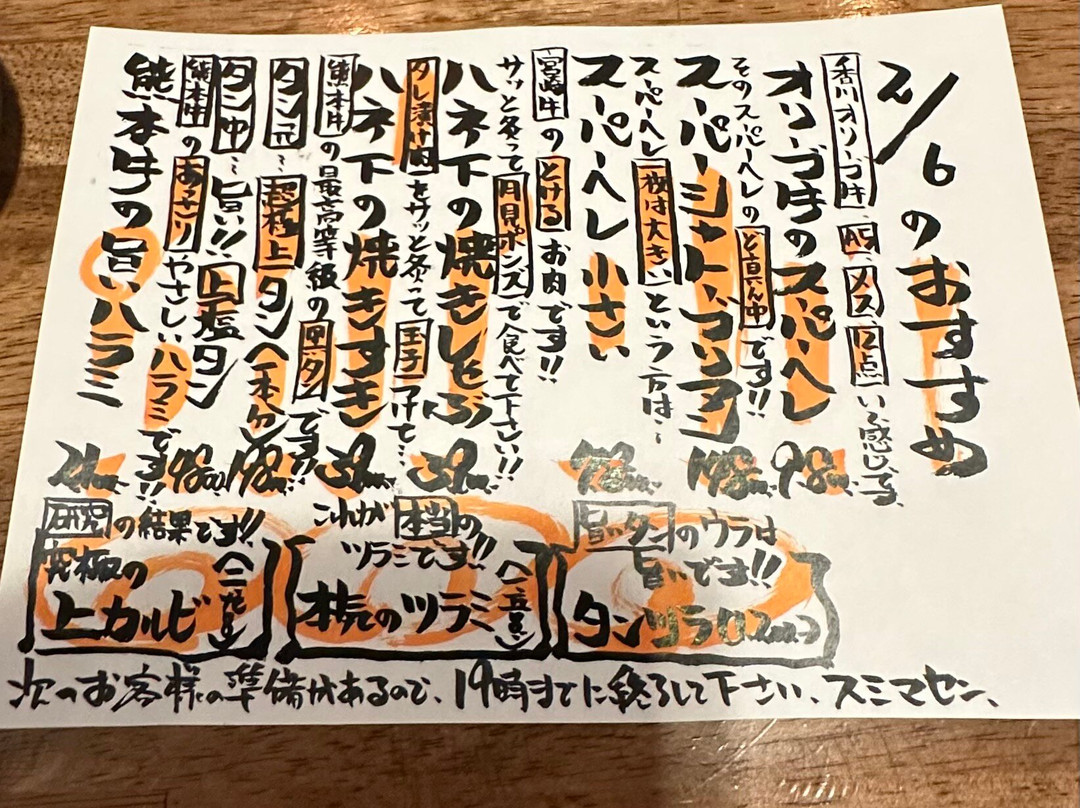 2/6のおすすめ
香川オリーブ牛 A5 メス 12点 いい感じです
オリーブ牛のスーパーヘレ
そのスーパーヘレのど真ん中です!!
スーパーシャトーブリアン
スーパーヘレ一枚は大きいという方は〜
スーパーヘレ小さい
宮崎牛のとけるお肉です!!
サッと炙って月見ポンズで食べて下さい!!
ハネ下の焼きしゃぶ
タレ漬け肉をサッと炙って玉子つけて…
ハネ下の焼きすき
熊本牛の最高等級の黒タンです!!
タン元〜超極上タン(一本分)
タン中〜旨い!!上塩タン
熊本牛のあっさりやさしいハラミです!!
熊本牛の旨いハラミ
旨いタンのウラは
旨いです!!
タンツラ
これが本当の
ツラミです!!
本気のツラミ
研究の結果です!!
究極の
上カルビ
次のお客様の準備があるので、19時までに終らして下さい、スミマセン、